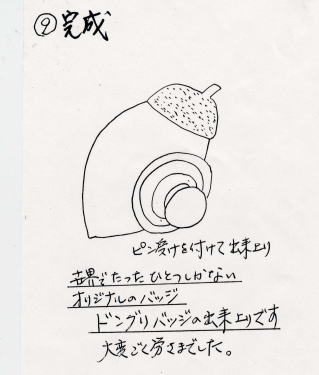 ⑨完成
ピン受けを付けて出来上り
世界でたったひとつしかない
オリジナルのバッジ
ドングリバッジの出来上りです
大変ごく労さまでした。